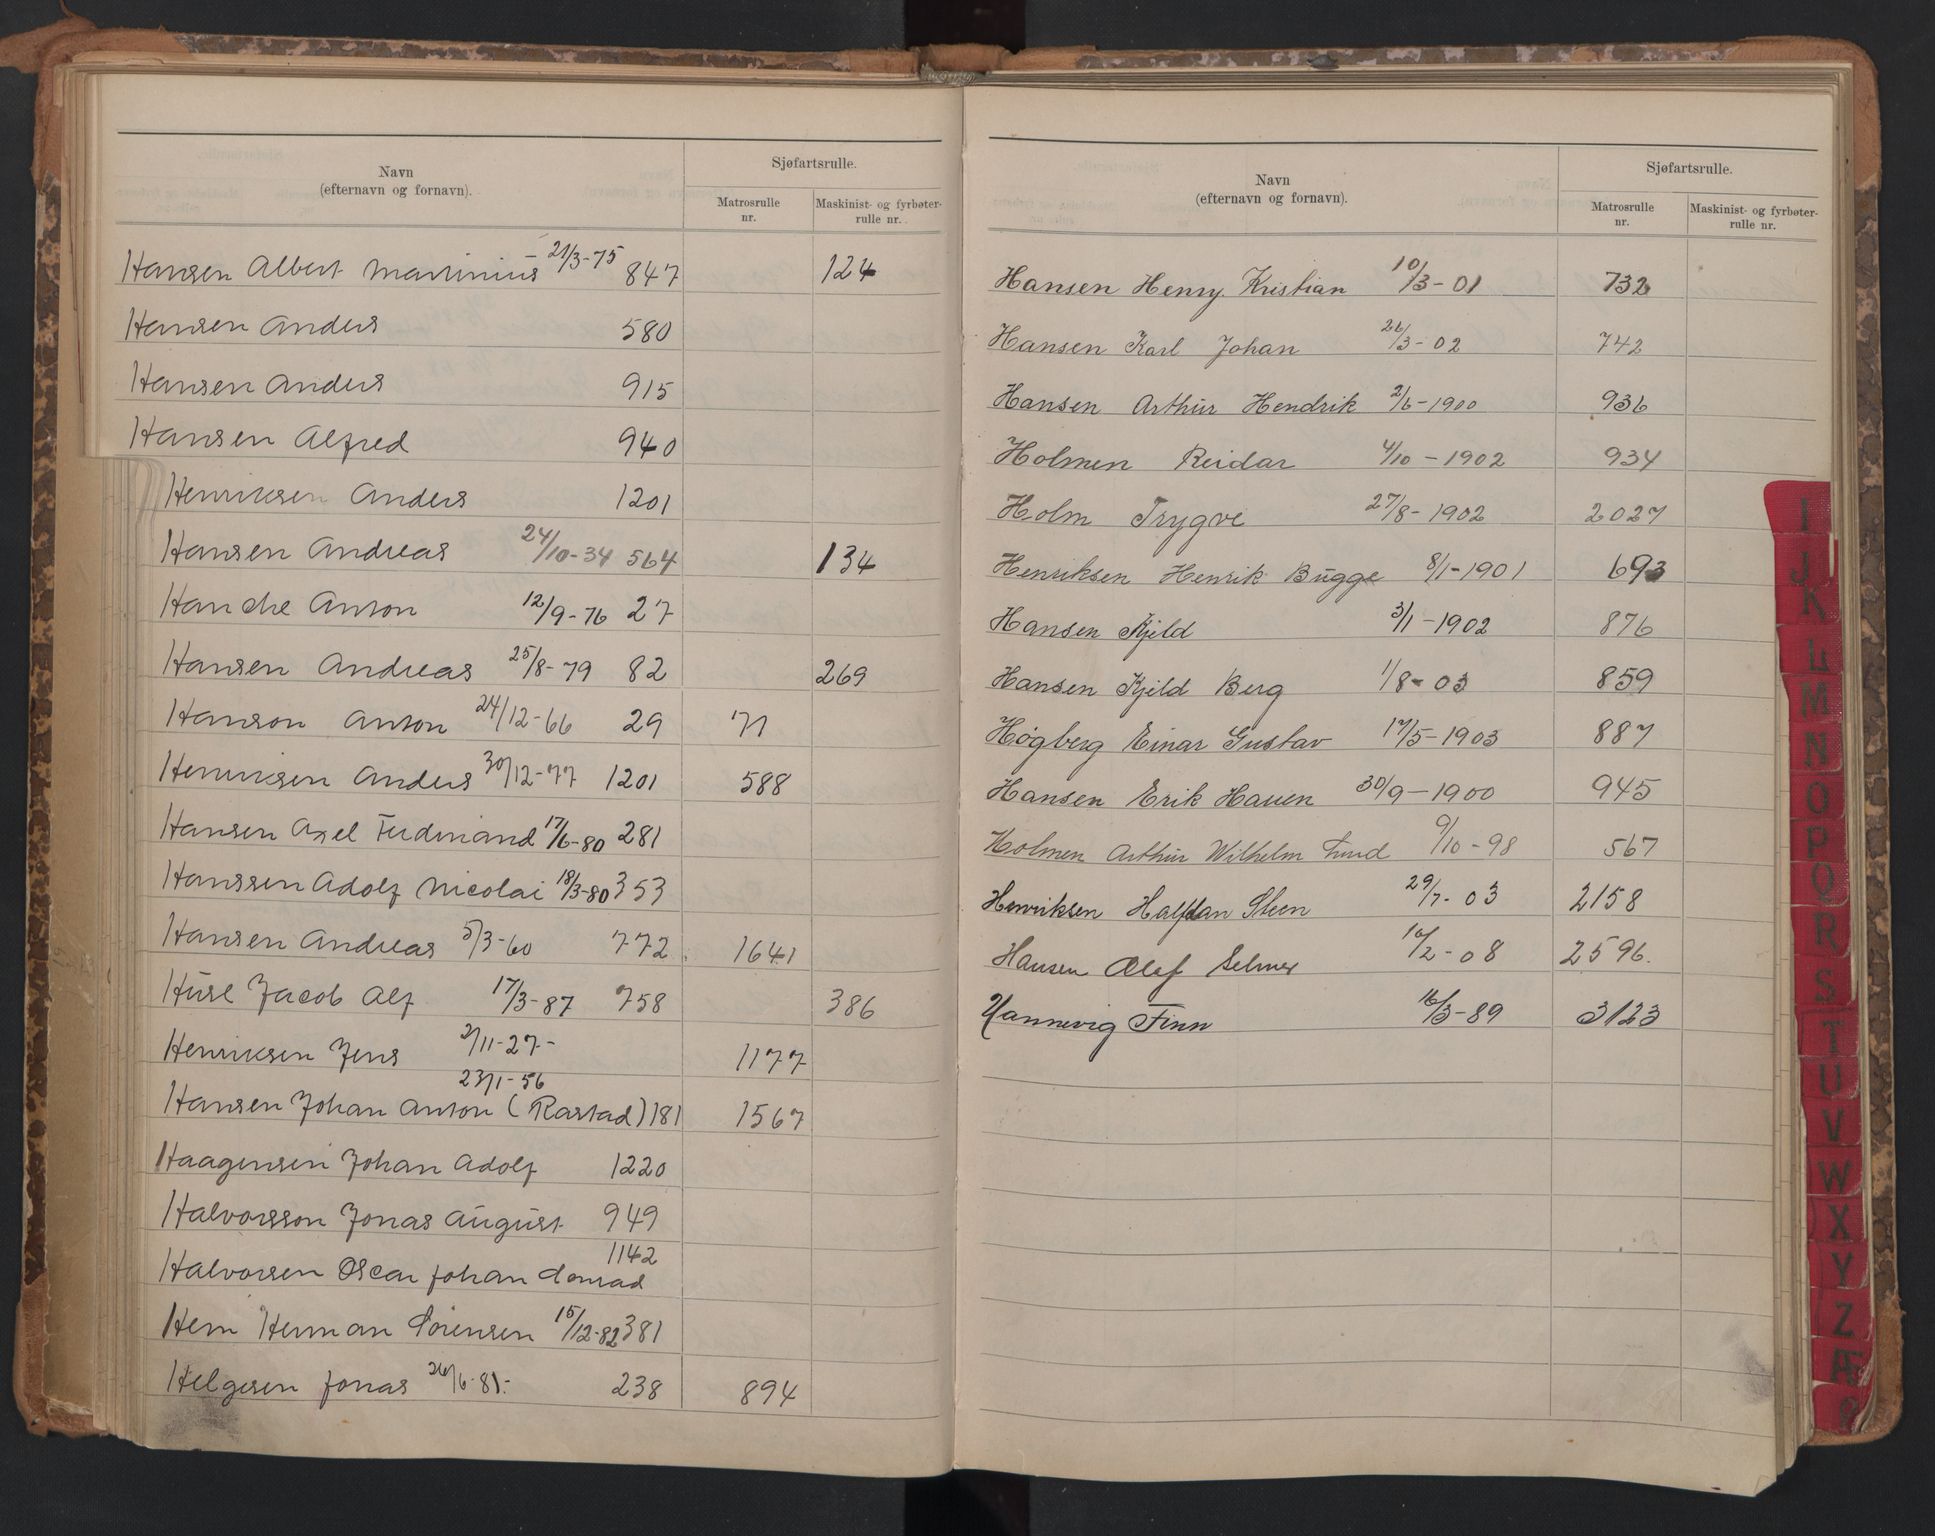 Navn
(efternavn og fornavn).
Sjøfartsrulle.
Matrosrulle
nr.
Maskinist- og fyrbøter-
rulle nr.
Hansen Albert Martinius 21/3-75 847 124
Hansen Anders 580
Hansen Anders 915
Hansen Alfred 940
Henriksen Anders 1201
Hansen Andreas 24/10-34 564 134
Hanche Anton 12/9-76 27
Hansen Andreas 25/8-79 82 269
Hanson Anton 24/12-66 29 71
Henriksen Anders 30/12-77 1201 588
Hansen Axel Ferdinand 17/6-80 281
Hanssen Adolf Nicolai 18/3-80 353
Hansen Andreas 5/3-60 772 1641
Jacob Alf 17/3-87 758 386
Henriksen Jens 2/11-27- 1177
23/1-56
Hansen Johan Anton (Rastad) 181 1567
Haagensen Johan Adolf 1220
Halvorsson Jonas August 949
1142
Halvorsen Oscar Johan Conrad
Hem Herman Sørensen 15/12-82 381
Helgesen Jonas 26/6-81.- 238 894
Navn
(efternavn og fornavn).
Sjøfartsrulle.
Matrosrulle
nr.
Maskinist- og fyrbøter-
rulle nr.
Hansen Henry Kristian 10/3-01 732
Hansen Karl Johan 26/3-02 742
Hansen Arthur Hendrik 2/6-1900 936
Holmen Reidar 4/10-1902 934
Holm Trygve 27/8-1902 2027
Henriksen Henrik Bugge 8/1-1901 693
Hansen Kjeld 3/1-1902 876
Hansen Kjeld Berg 1/8-03 859
Høgberg Einar Gustav 17/5-1903 887
Hansen Erik Hauen 30/9-1900 945
Holmen Arthur Wilhelm Lund 9/10-98 567
Henriksen Halfdan Steen 29/7-03 2158
Hansen Olaf Selmer 16/2-08 2596.
Hannevig Finn 16/3-89 3123
I
J
K
L
M
N
O
P
Q
R
S
T
U
V
W
X
Y
Z
Æ
Ø